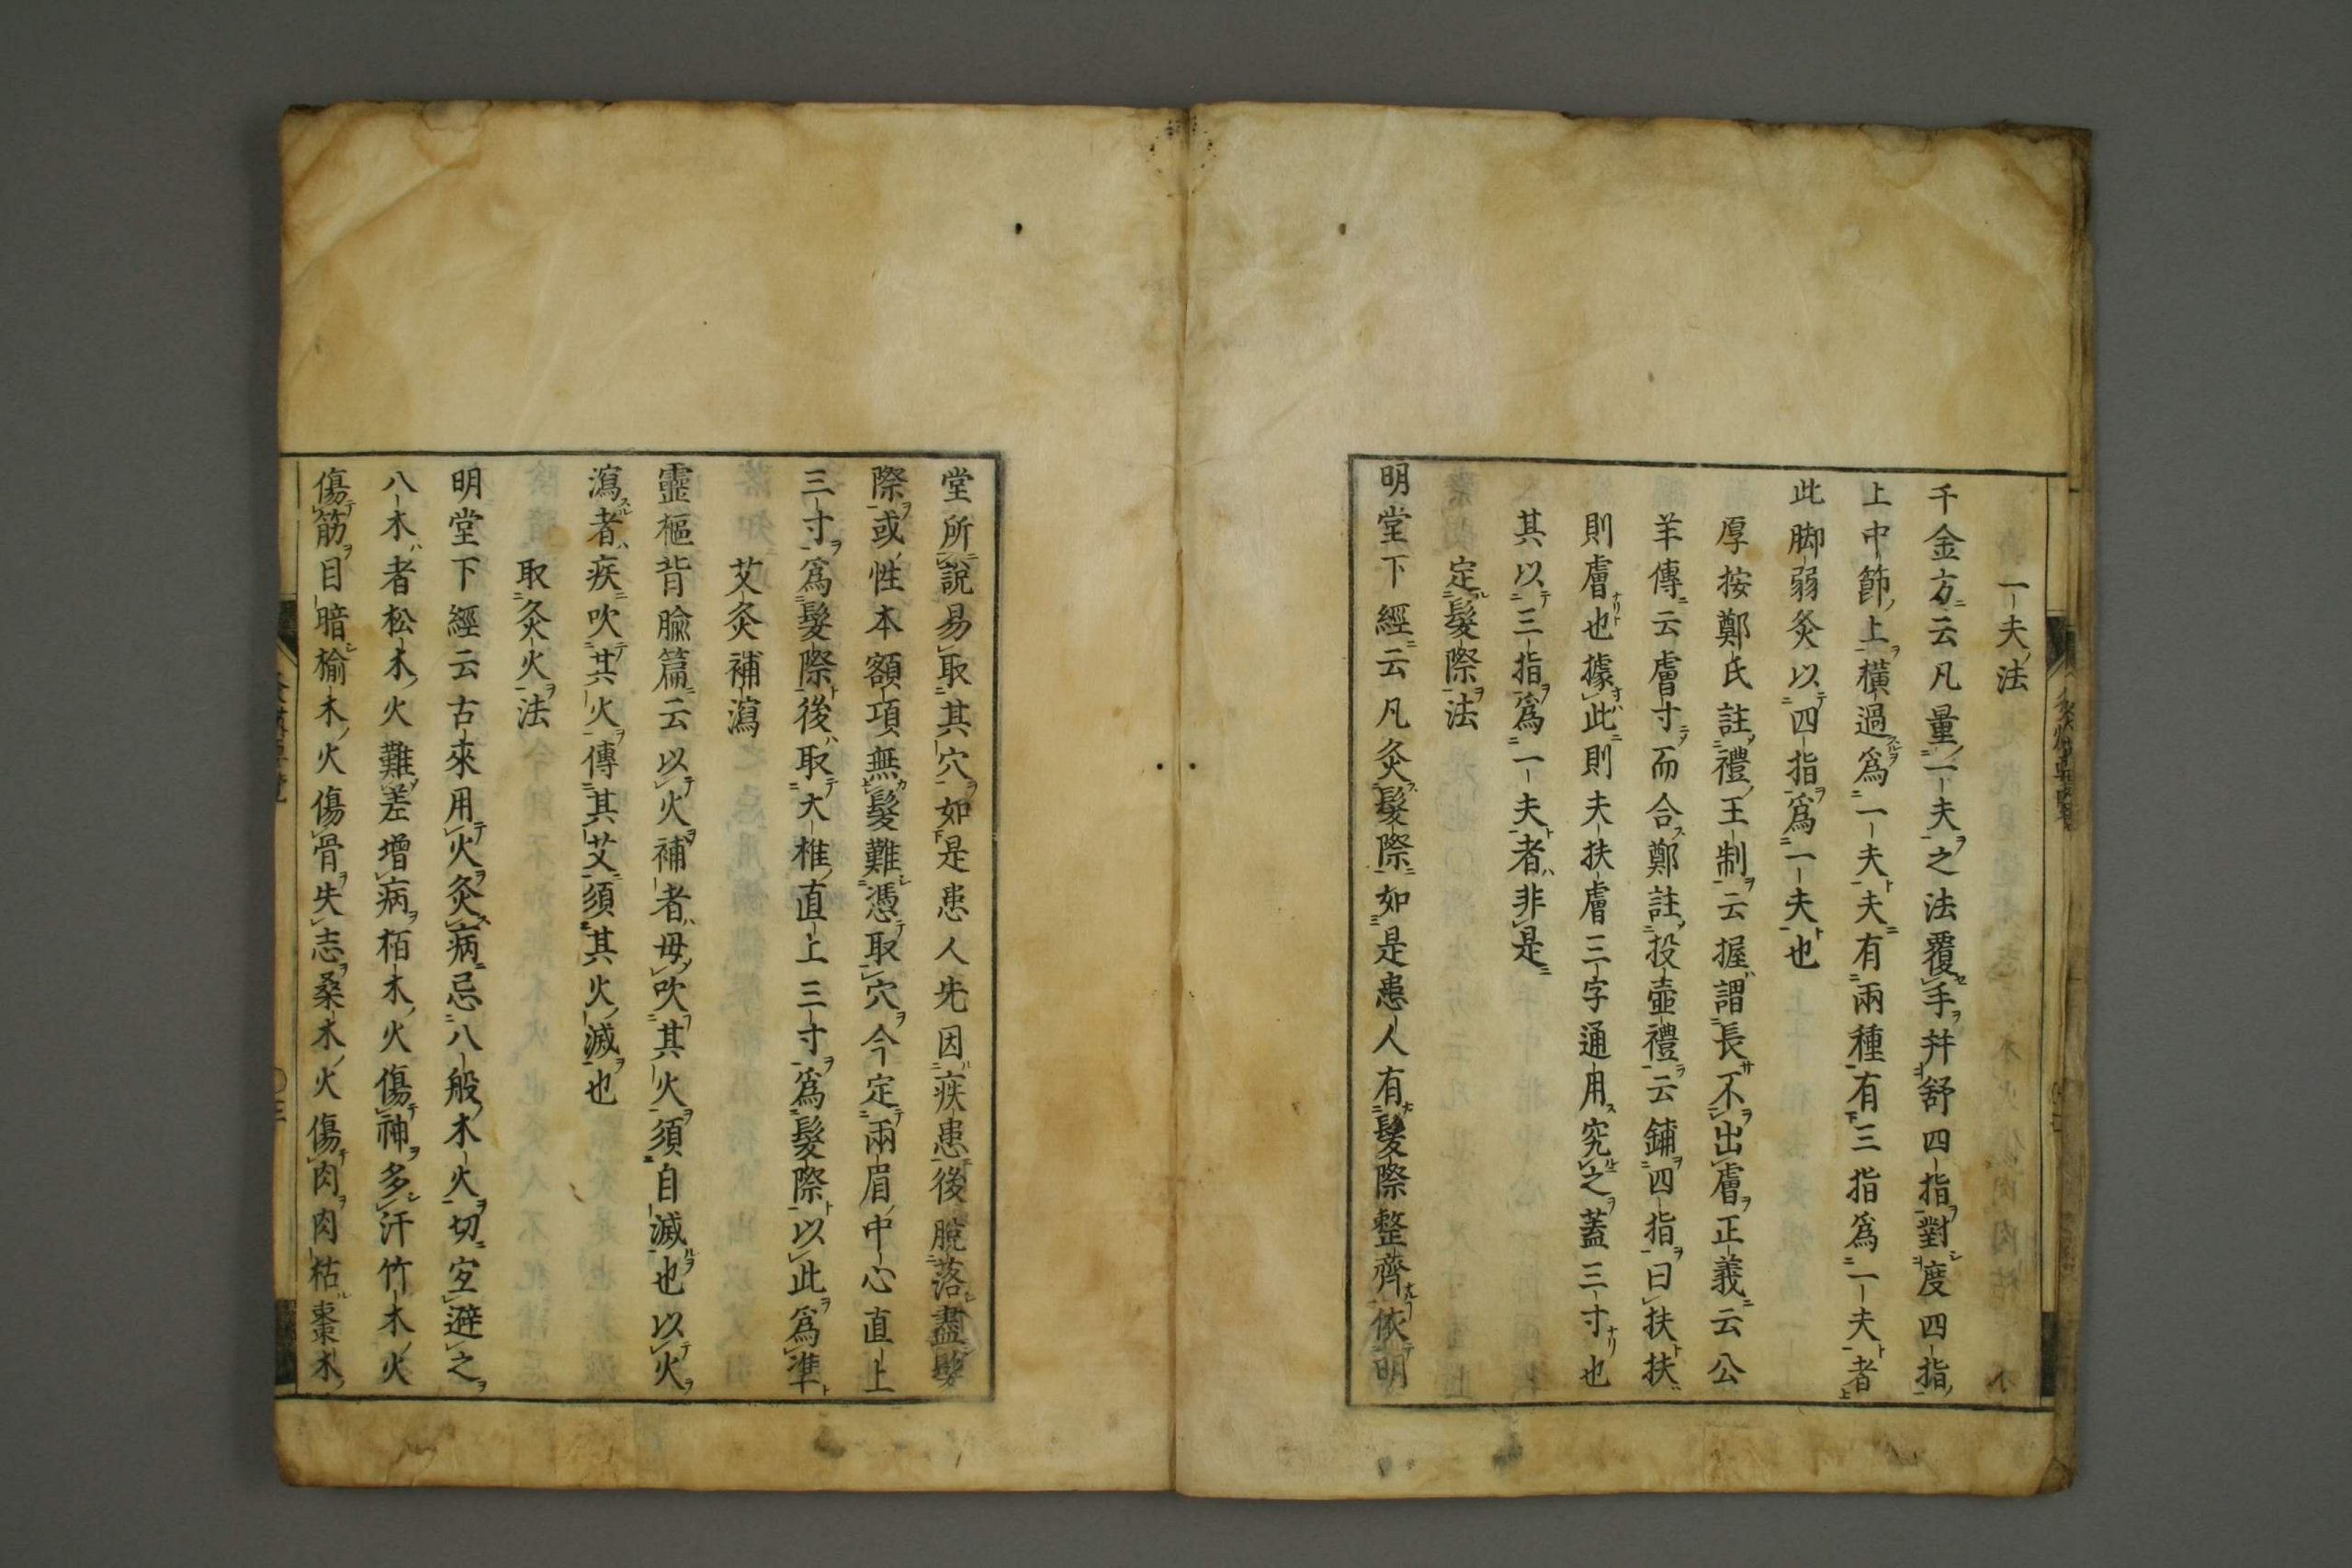 一夫法
千金方云凡量一夫之法覆手幷舒四指對度四指
上中節上橫過爲一夫夫有兩種有三指爲一夫者
此脚弱灸以四指爲一夫也
厚按鄭氏註禮王制云握謂長不出膚正義云公
羊傳云膚寸而合鄭註投壺禮云鋪四指曰扶扶
則膚也據此則夫扶膚三字通用究之蓋三寸也
其以三指爲一夫者非是
定髮際法
明堂下經云凡灸髮際如是患人有髮際整齊依明
堂所說易取其穴如是患人先因疾患後脫落盡髮
際或性本額項無髮難憑取穴今定兩眉中心直上
三寸爲髮際後取大椎直上三寸爲髮際以此爲準
艾灸補瀉
靈樞背腧篇云以火補者毋吹其火須自滅也以火
瀉者疾吹其火傳其艾須其火滅也
取灸火法
明堂下經云古來用火灸病忌八般木火切宜避之
八木者松木火難差增病栢木火傷神多汗竹木火
傷筋目暗榆木火傷骨失志桑木火傷肉肉枯棗木